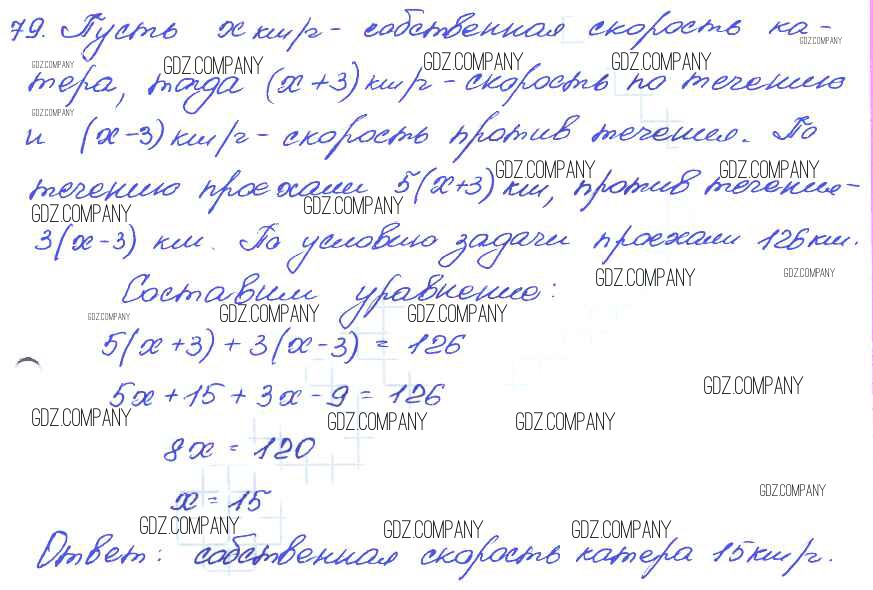 79. Пусть х км/ч - собственная скорость ка-
GDZ.COMPANY
GDZ.COMPANY GDZ.COMPANY GDZ.COMPANY GDZ.COMPANY
тера, тогда (х+3) км/ч - скорость по течению
GDZ.COMPANY
и (х-3) км/ч - скорость против течения. По
GDZ.COMPANY GDZ.COMPANY
течению проехали 5(х+3) км, против течения-
GDZ.COMPANY GDZ.COMPANY
3(х-3) км. По условию задачи проехали 126 км.
GDZ.COMPANY GDZ.COMPANY
Составим уравнение:
GDZ.COMPANY GDZ.COMPANY GDZ.COMPANY
5(х+3) + 3(х-3) = 126
GDZ.COMPANY
5х + 15 + 3х - 9 = 126
GDZ.COMPANY GDZ.COMPANY GDZ.COMPANY
8х = 120
GDZ.COMPANY
х = 15
GDZ.COMPANY GDZ.COMPANY GDZ.COMPANY
Ответ: собственная скорость катера 15 км/ч.